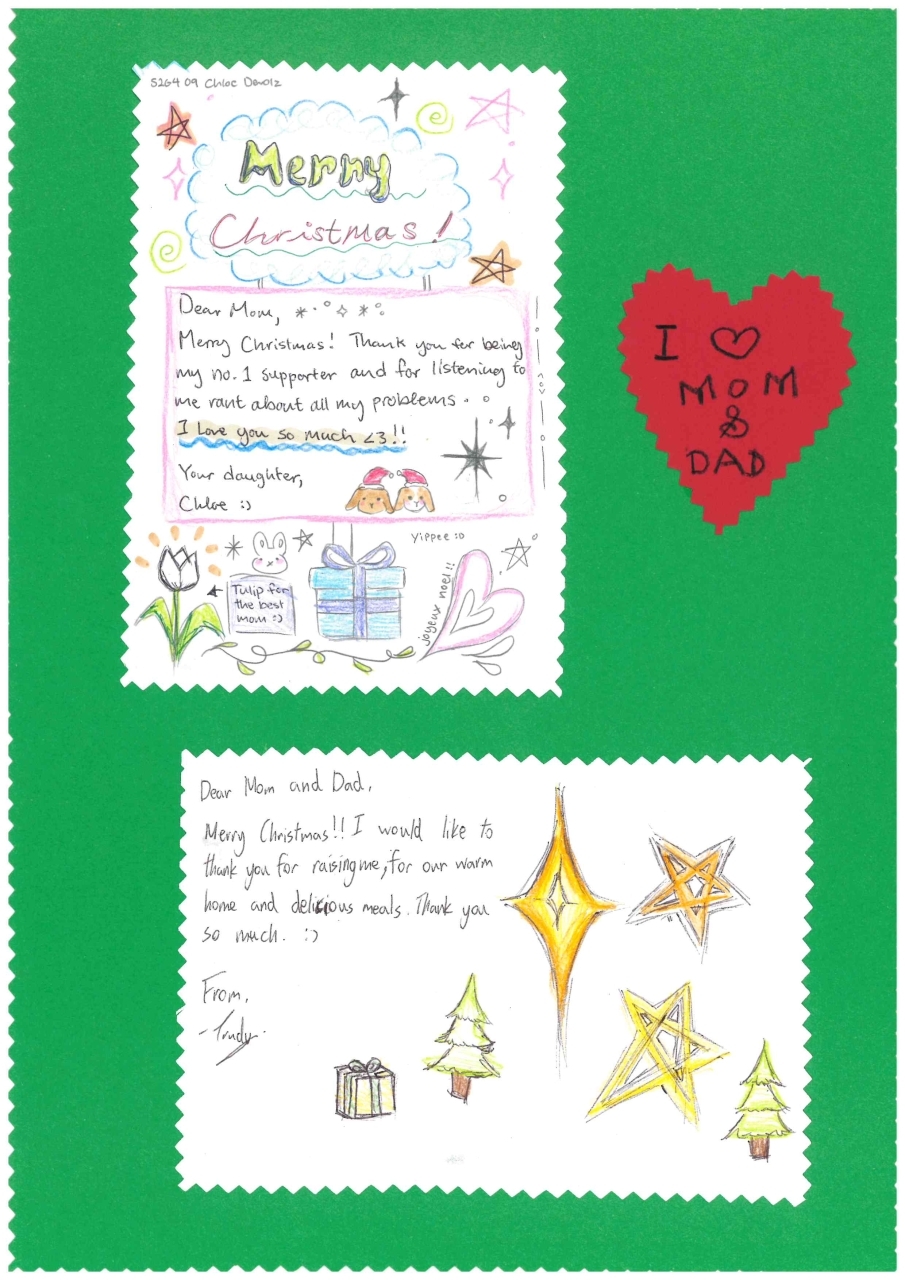 S2G4 09 Chloe
Merry
Christmas!
Dear Mom,
Merry Christmas! Thank you for being
my no.1 supporter and for listening to
me rant about all my problems.
I Love you so much <3!!
Your daughter,
Chloe :)
Yippee :D
Tulip for
the best
mom :)
joyeux noel!!
I ♡
MOM
&
DAD
Dear Mom and Dad,
Merry Christmas!! I would like to
thank you for raising me, for our warm
home and delicious meals. Thank you
so much. :)
From,
-Trudy-